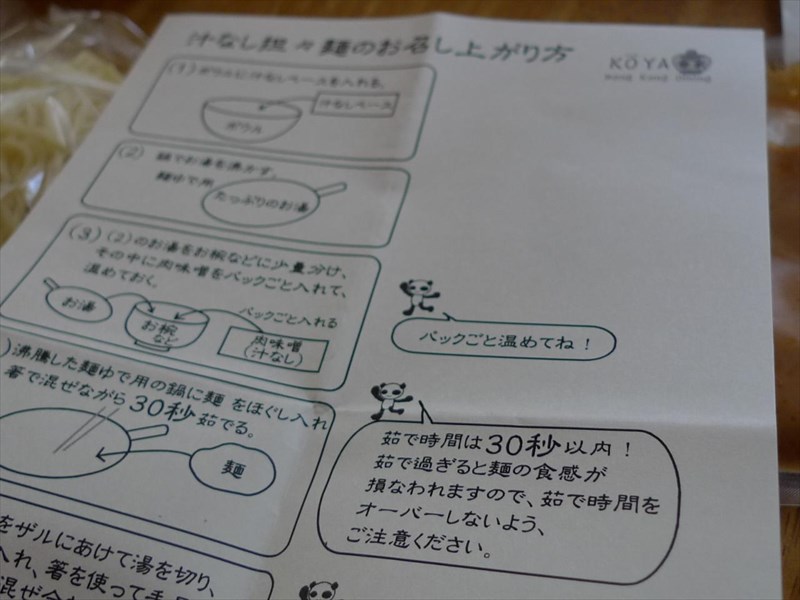 汁なし担々麺のお召し上がり方
KŌYA
(1) ボウルに汁なしベースを入れる。
汁なしベース
ボウル
(2) 鍋でお湯を沸かす。
麺ゆで用
たっぷりのお湯
(3) (2)のお湯をお椀などに少量分け、
その中に肉味噌をパックごと入れて、
温めておく。
お湯
お椀
など
パックごと入れる
肉味噌
(汁なし)
パックごと温めてね!
)沸騰した麺ゆで用の鍋に麺をほぐし入れ
箸で混ぜながら30秒茹でる。
麺
茹で時間は30秒以内!
茹で過ぎると麺の食感が
損なわれますので、茹で時間を
オーバーしないよう、
ご注意ください。
をザルにあけて湯を切り、
入れ、箸を使って手
混ぜ合